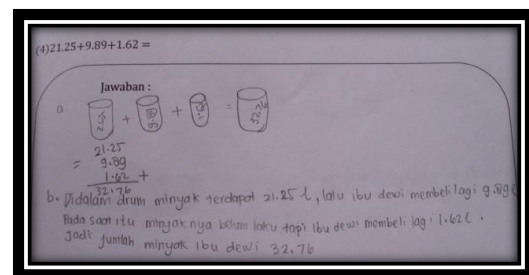 (4)21.25+9.89+1.62 =
Jawaban :
21.25 + 9.89 + 1.62 = 32.76
21.25
= 9.89
1.62 +
32.76
b. Didalam drum minyak terdapat 21.25 l, lalu ibu dewi membeli lagi 9.89 l
Pada saat itu minyaknya belum laku tapi ibu dewi membeli lagi 1.62 l.
Jadi jumlah minyak ibu dewi 32.76